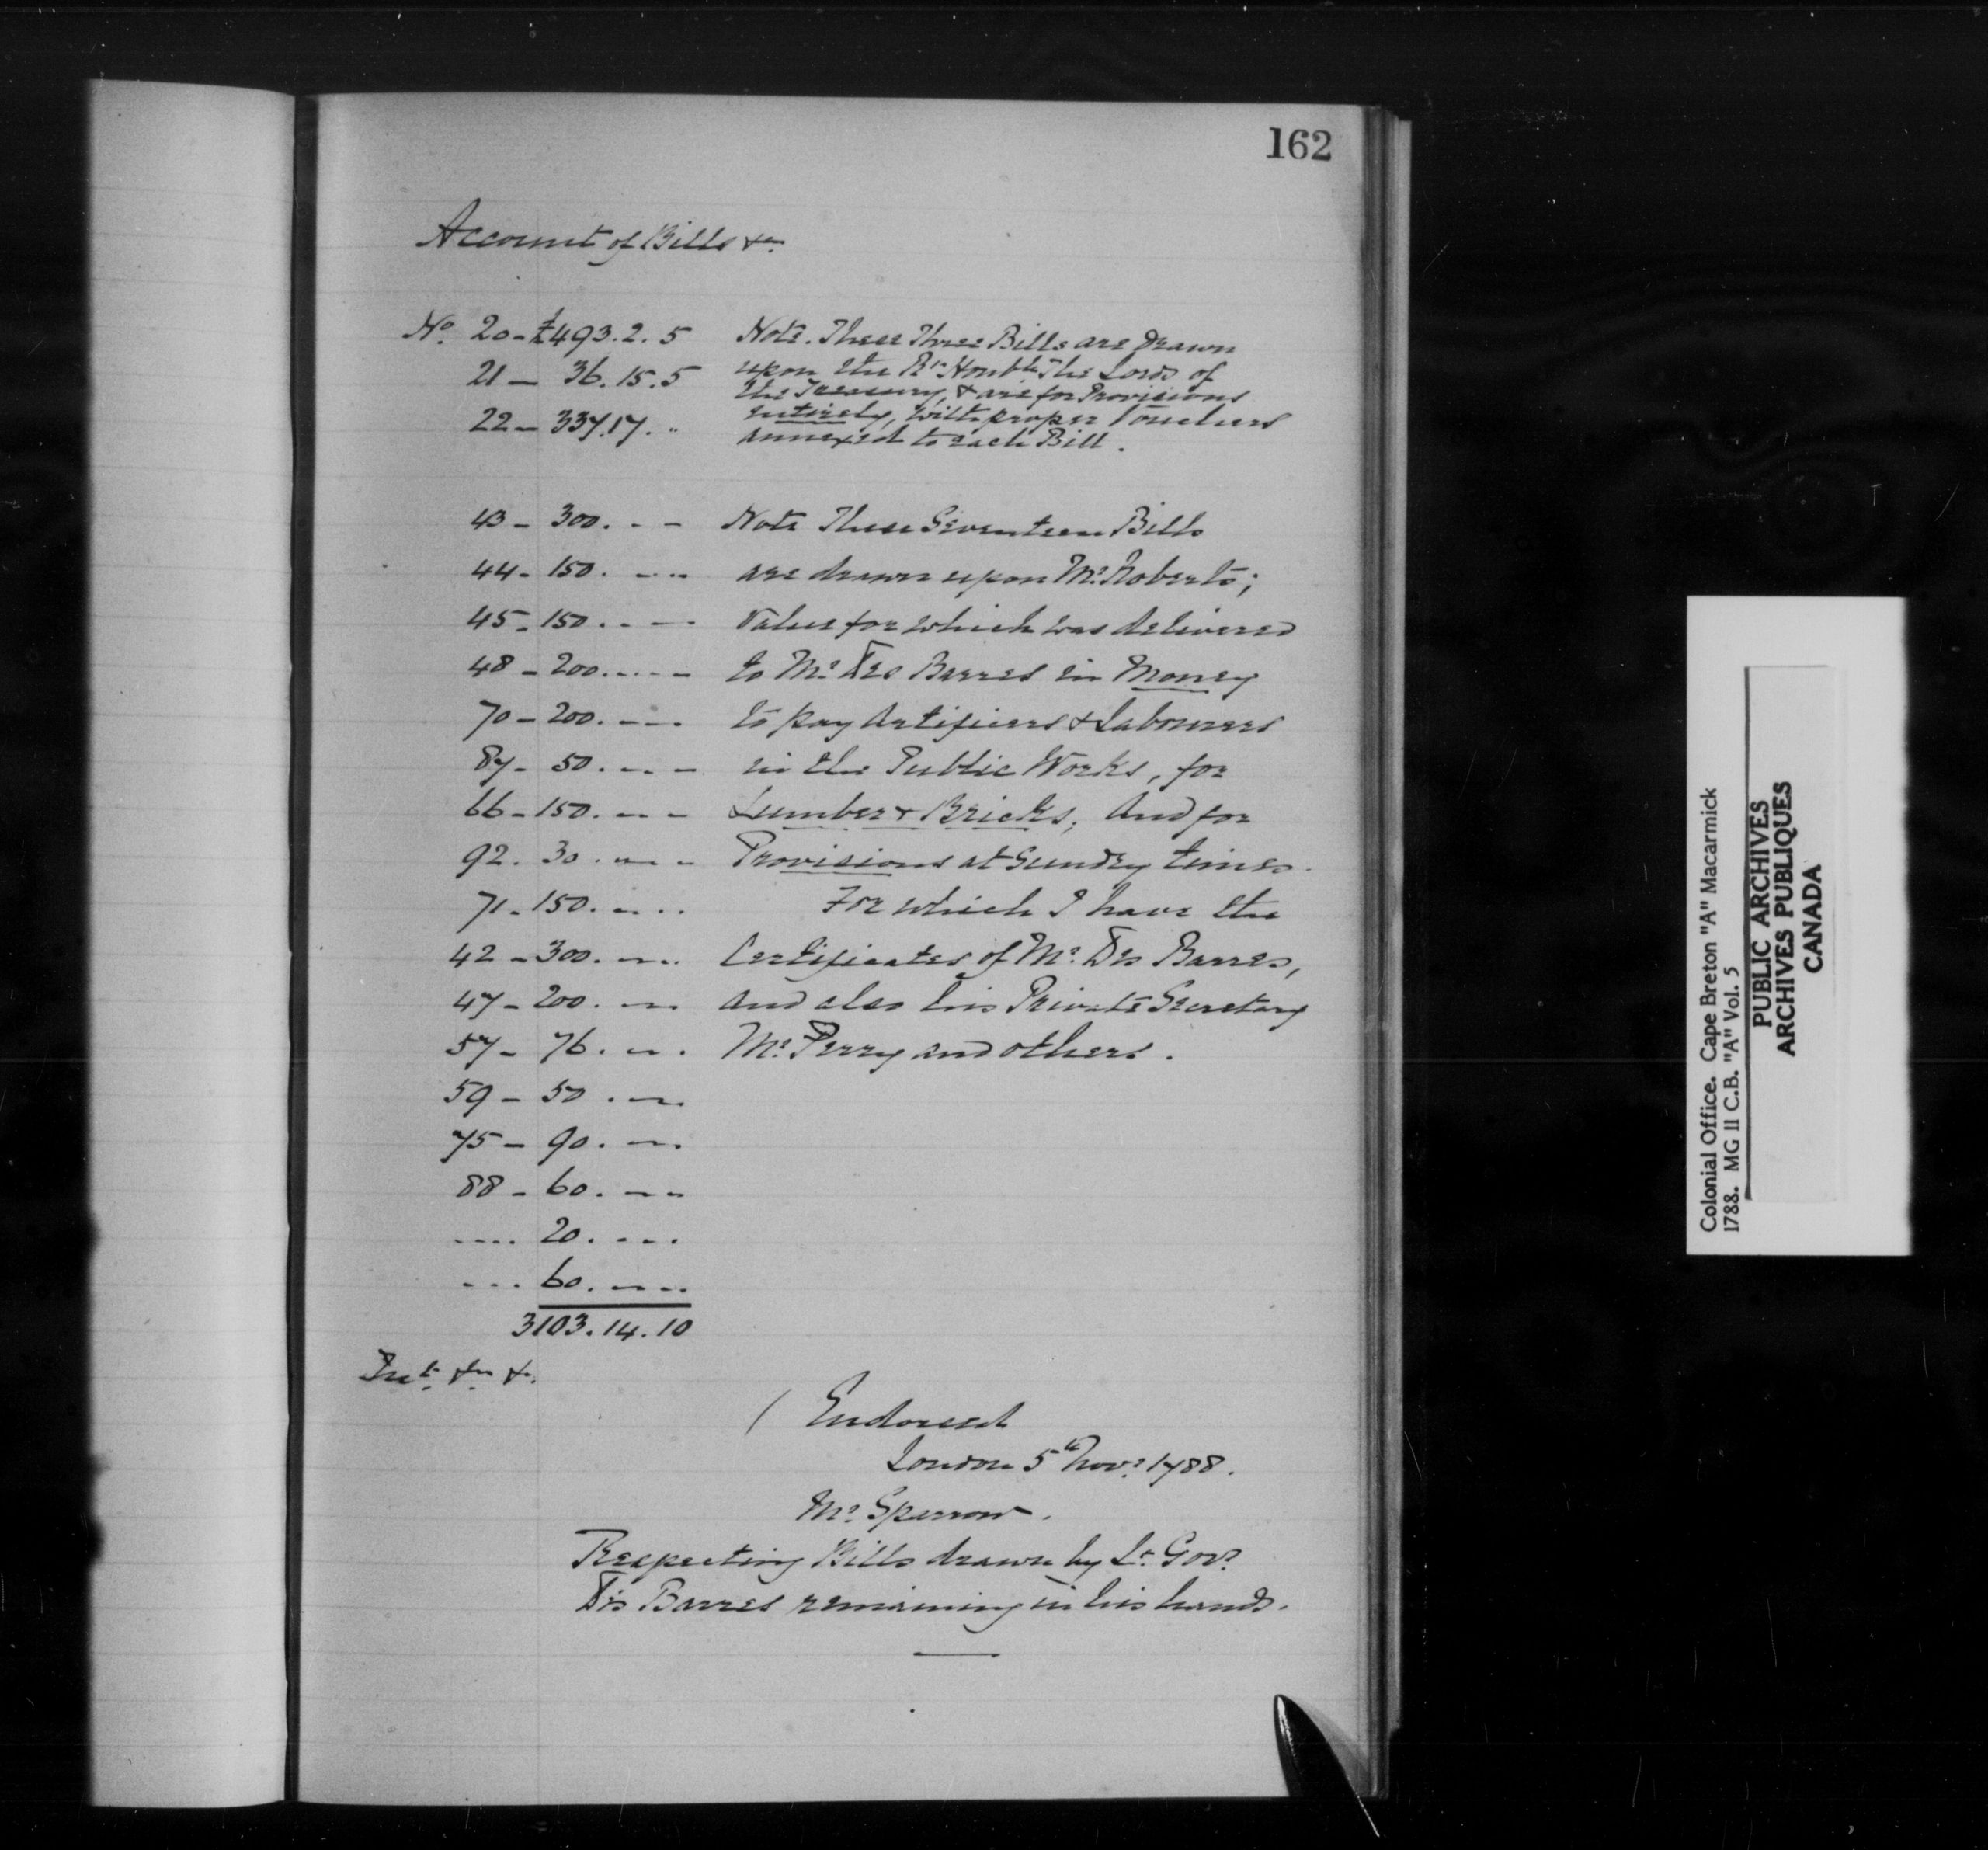 162
Account of Bills &c.
No. 20 - £493.2.5 Note. These Three Bills are drawn
upon the Rt. Honble. The Lords of
21 - 36.15.5
the Treasury, & are for Provisions
22 - 337.17. " entirely, with proper Vouchers
annexed to each Bill.
43 - 300. - - Note These Seventeen Bills
44 - 150. - - are drawn upon Mr. Roberts;
45 - 150. - - Value for which was delivered
48 - 200. - - to Mr. Des Barres in Money
70 - 200. - - to pay Artificers & Labourers
87 - 50. - - in the Public Works, for
66 - 150. - - Lumber & Bricks; And for
92. 30. - - Provisions at Sundry times.
71 - 150. - - For which I have the
42 - 300. - - Certificates of Mr. Des Barres,
47 - 200. - - and also his Private Secretary
57 - 76. - - Mr. Perry and others.
59 - 50. - -
75 - 90. - -
88 - 60. - -
.... 20. - -
... 60. - -
3103.14.10
( Endorsed
London 5th Novr. 1788.
Mr. Sparrow.
Respecting Bills drawn by Lt. Govr.
Des Barres remaining in his hands.
Colonial Office. Cape Breton "A" Macarmick
1788. MG 11 C.B. "A" Vol. 5
PUBLIC ARCHIVES
ARCHIVES PUBLIQUES
CANADA